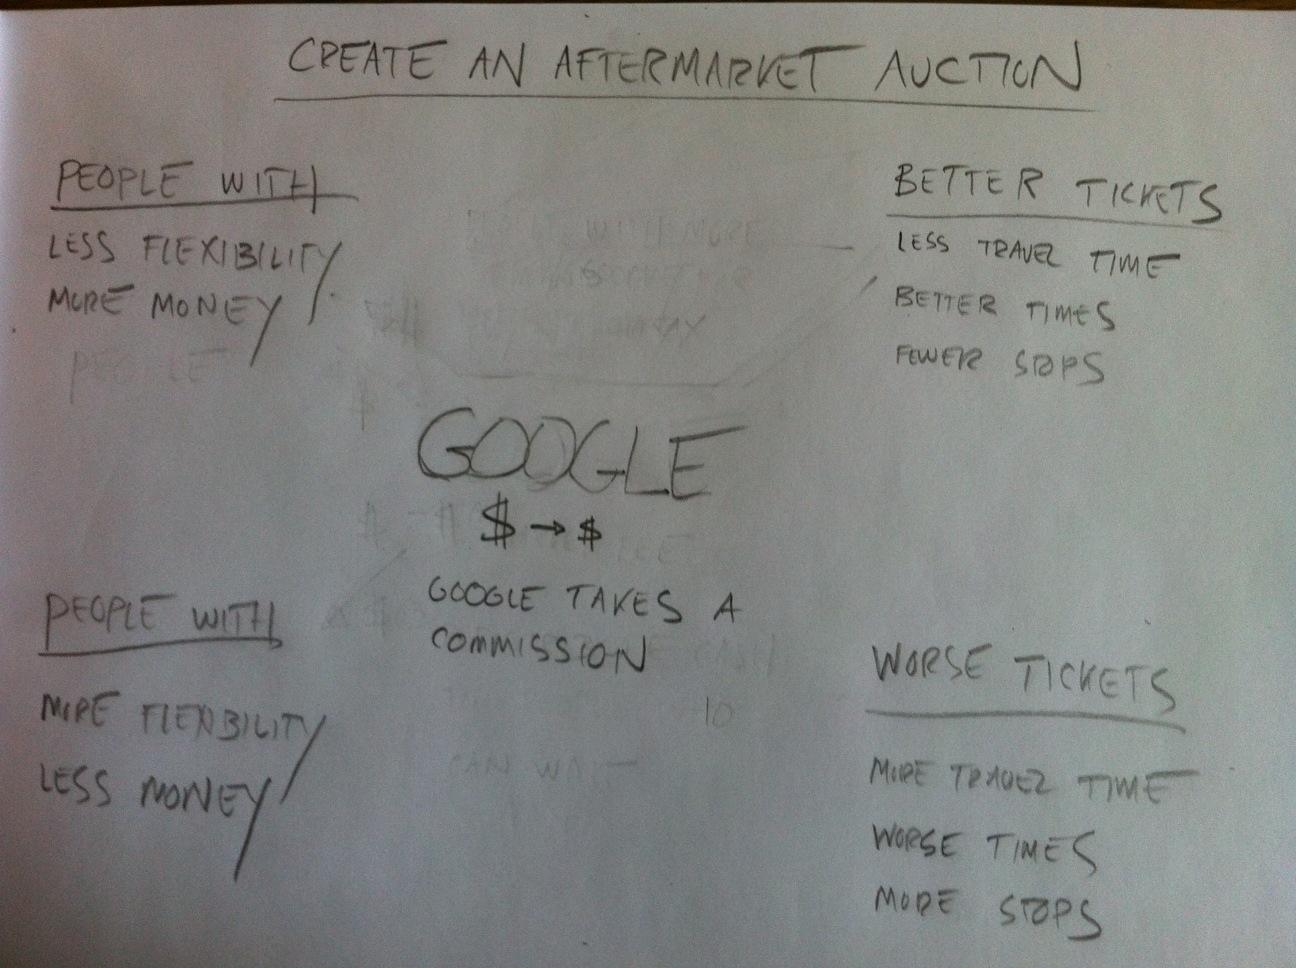 CREATE AN AFTERMARKET AUCTION
PEOPLE WITH
LESS FLEXIBILITY
MORE MONEY
BETTER TICKETS
LESS TRAVEL TIME
BETTER TIMES
FEWER STOPS
PEOPLE
GOOGLE
$ → $
GOOGLE TAKES A
COMMISSION
PEOPLE WITH
MORE FLEXIBILITY
LESS MONEY
WORSE TICKETS
MORE TRAVEL TIME
WORSE TIMES
MORE STOPS